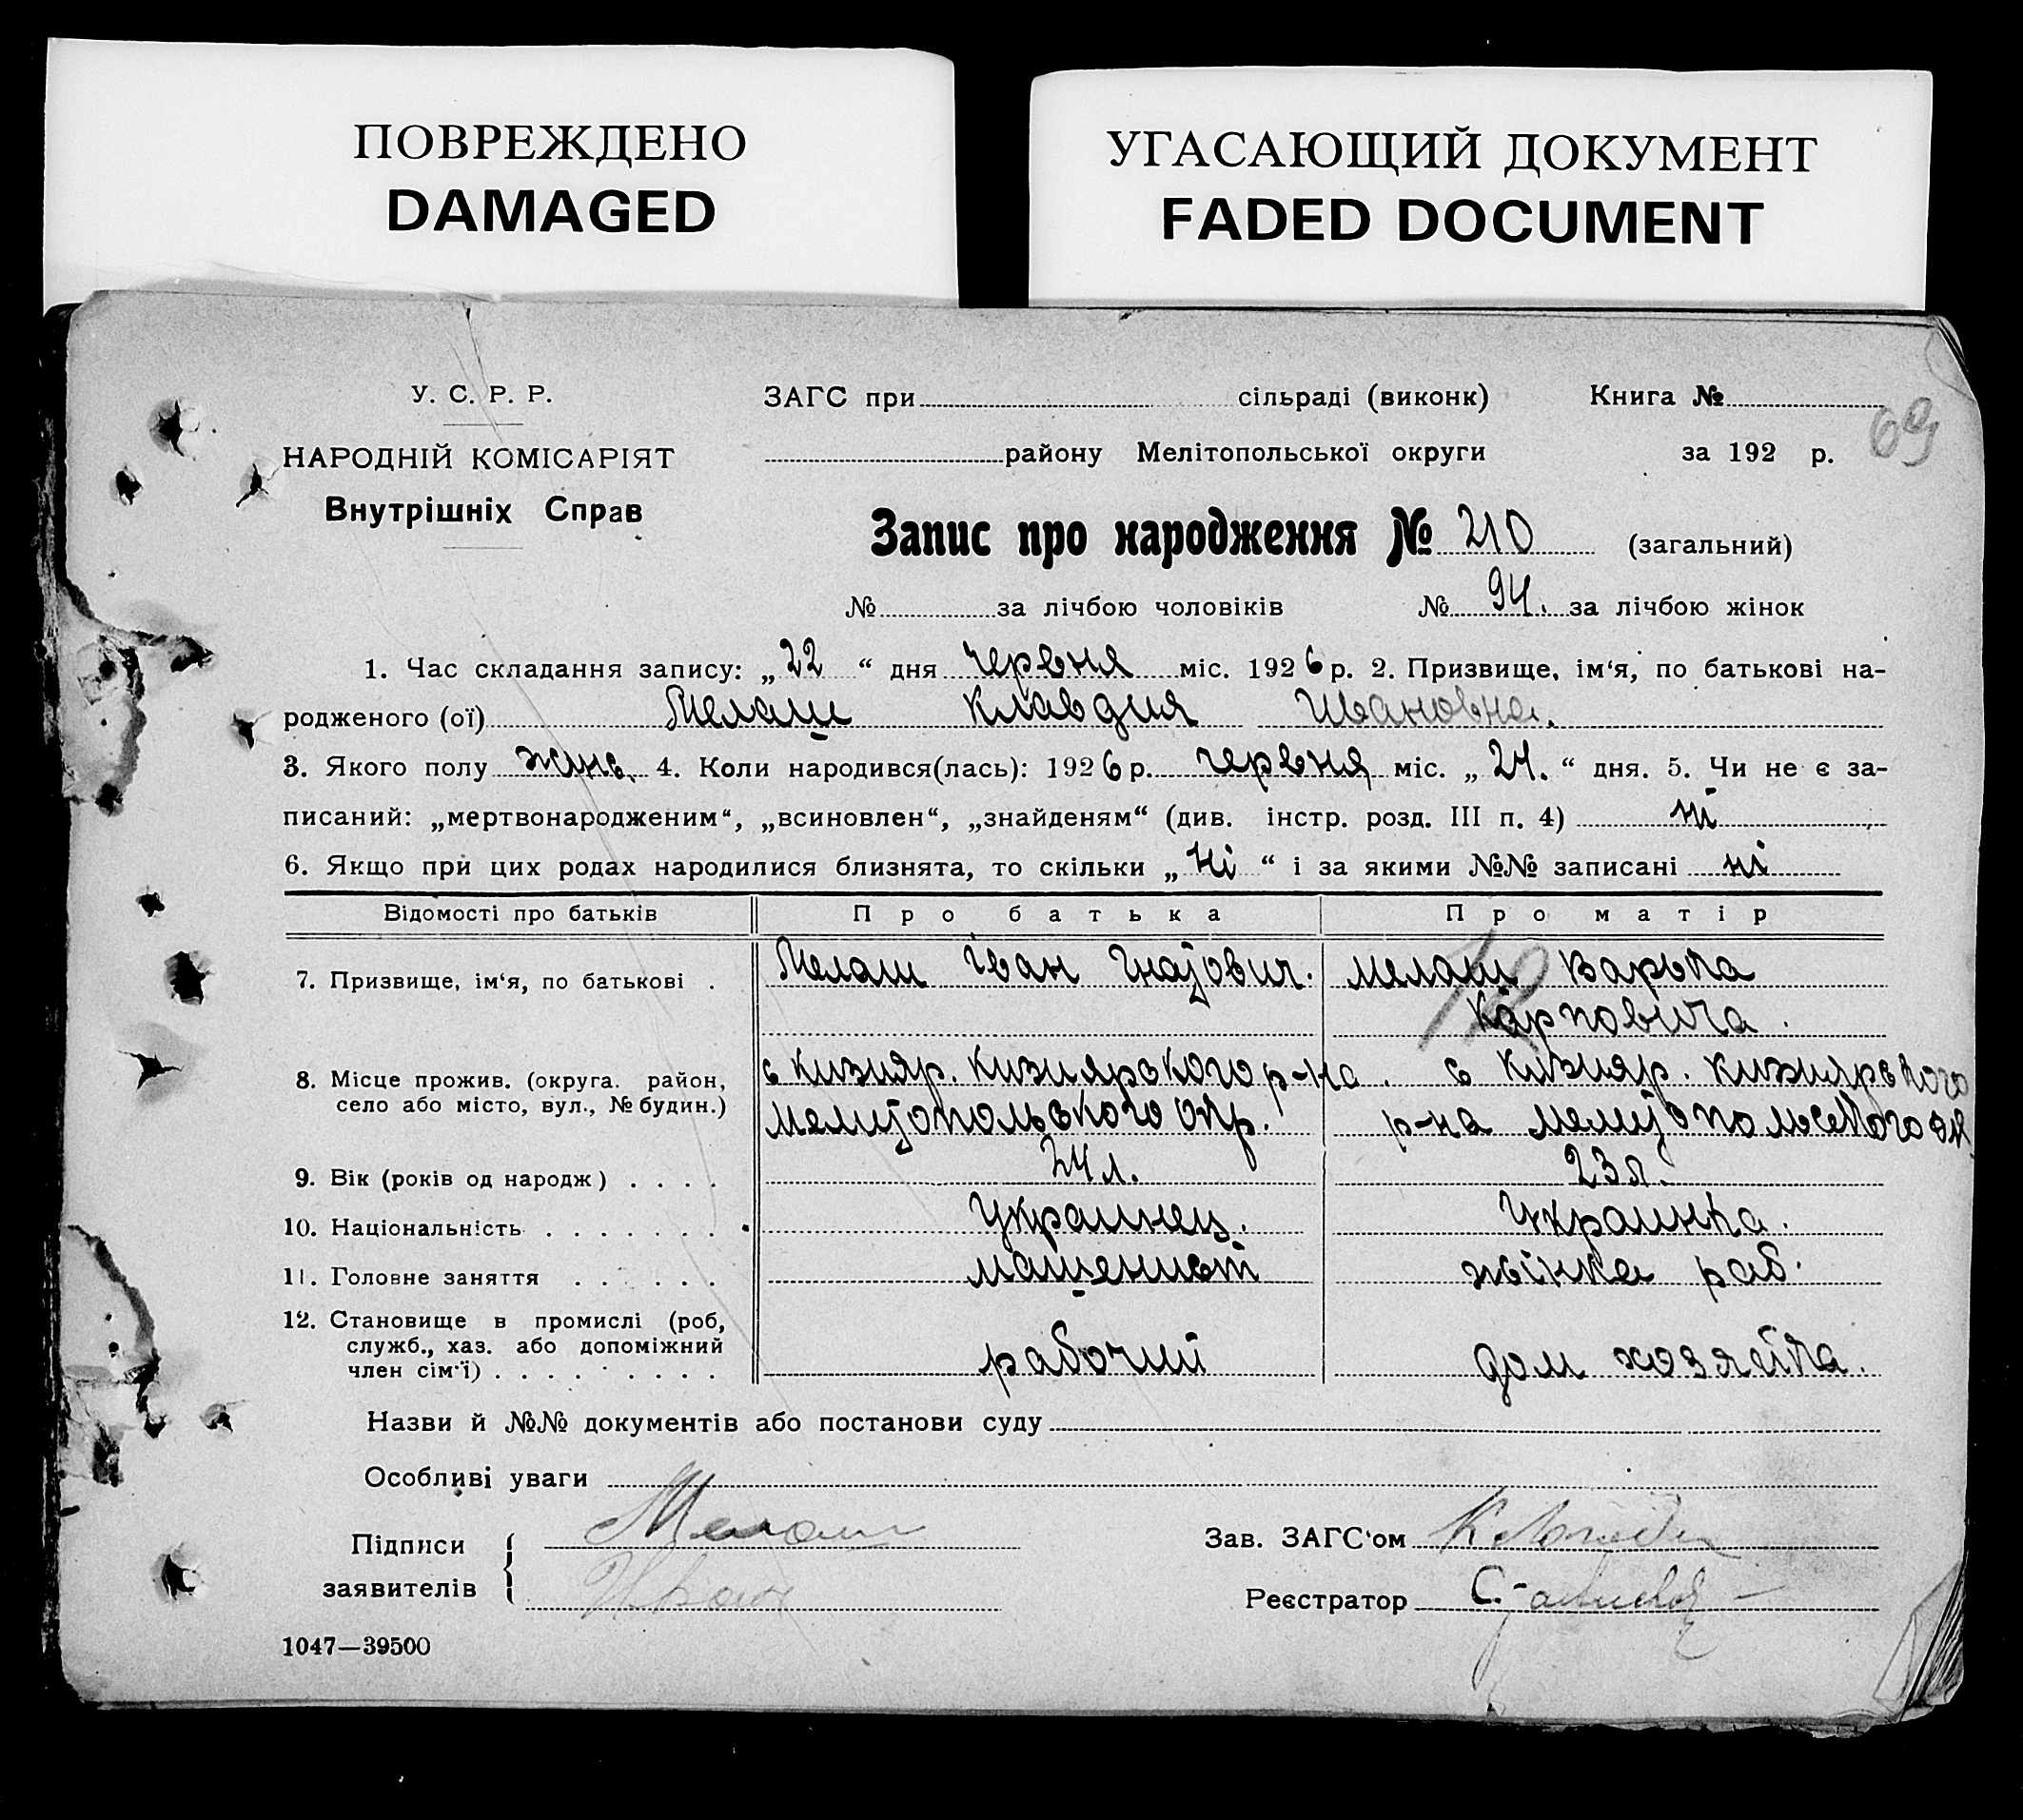 ПОВРЕЖДЕНО
DAMAGED
УГАСАЮЩИЙ ДОКУМЕНТ
FADED DOCUMENT
У. С. Р. Р.
НАРОДНІЙ КОМІСАРІЯТ
Внутрішніх Справ
ЗАГС при сільраді (виконк) Книга №
69
району Мелітопольської округи за 192 р.
Запис про народження № 210 (загальний)
№ за лічбою чоловіків № 94. за лічбою жінок
1. Час складання запису: „22“ дня червня міс. 1926 р. 2. Призвище, ім‘я, по батькові на-
родженого (ої) Мелаш Клавдия Ивановна.
3. Якого полу жінс. 4. Коли народився(лась): 1926 р. червня міс. „21.“ дня. 5. Чи не є за-
писаний: „мертвонародженим“, „всиновлен“, „знайденям“ (див. інстр. розд. III п. 4) ні
6. Якщо при цих родах народилися близнята, то скільки „Ні“ і за якими №№ записані ні
Відомості про батьків Про батька Про матір
7. Призвище, ім‘я, по батькові . Мелаш Іван Гнатович. Мелаш Варька
Карповича.
8. Місце прожив. (округа. район, с Кизияр. Кизиярского р-на. с Кизияр. Кизиярского
село або місто, вул., № будин.) Мелитопольского окр. р-на Мелитопольского ок
9. Вік (років од народж) . . . . 24 л. 23 л.
10. Національність . . . . . . . Украинец. Украинка.
11. Головне заняття . . . . . . машенист жінка раб.
12. Становище в промислі (роб,
служб., хаз. або допоміжний
член сім‘ї) . . . . . . . . рабочий дом хозяйка.
Назви й №№ документів або постанови суду
Особливі уваги
Підписи Мелаш
заявителів Иван
Зав. ЗАГС‘ом
Реєстратор
1047—39500